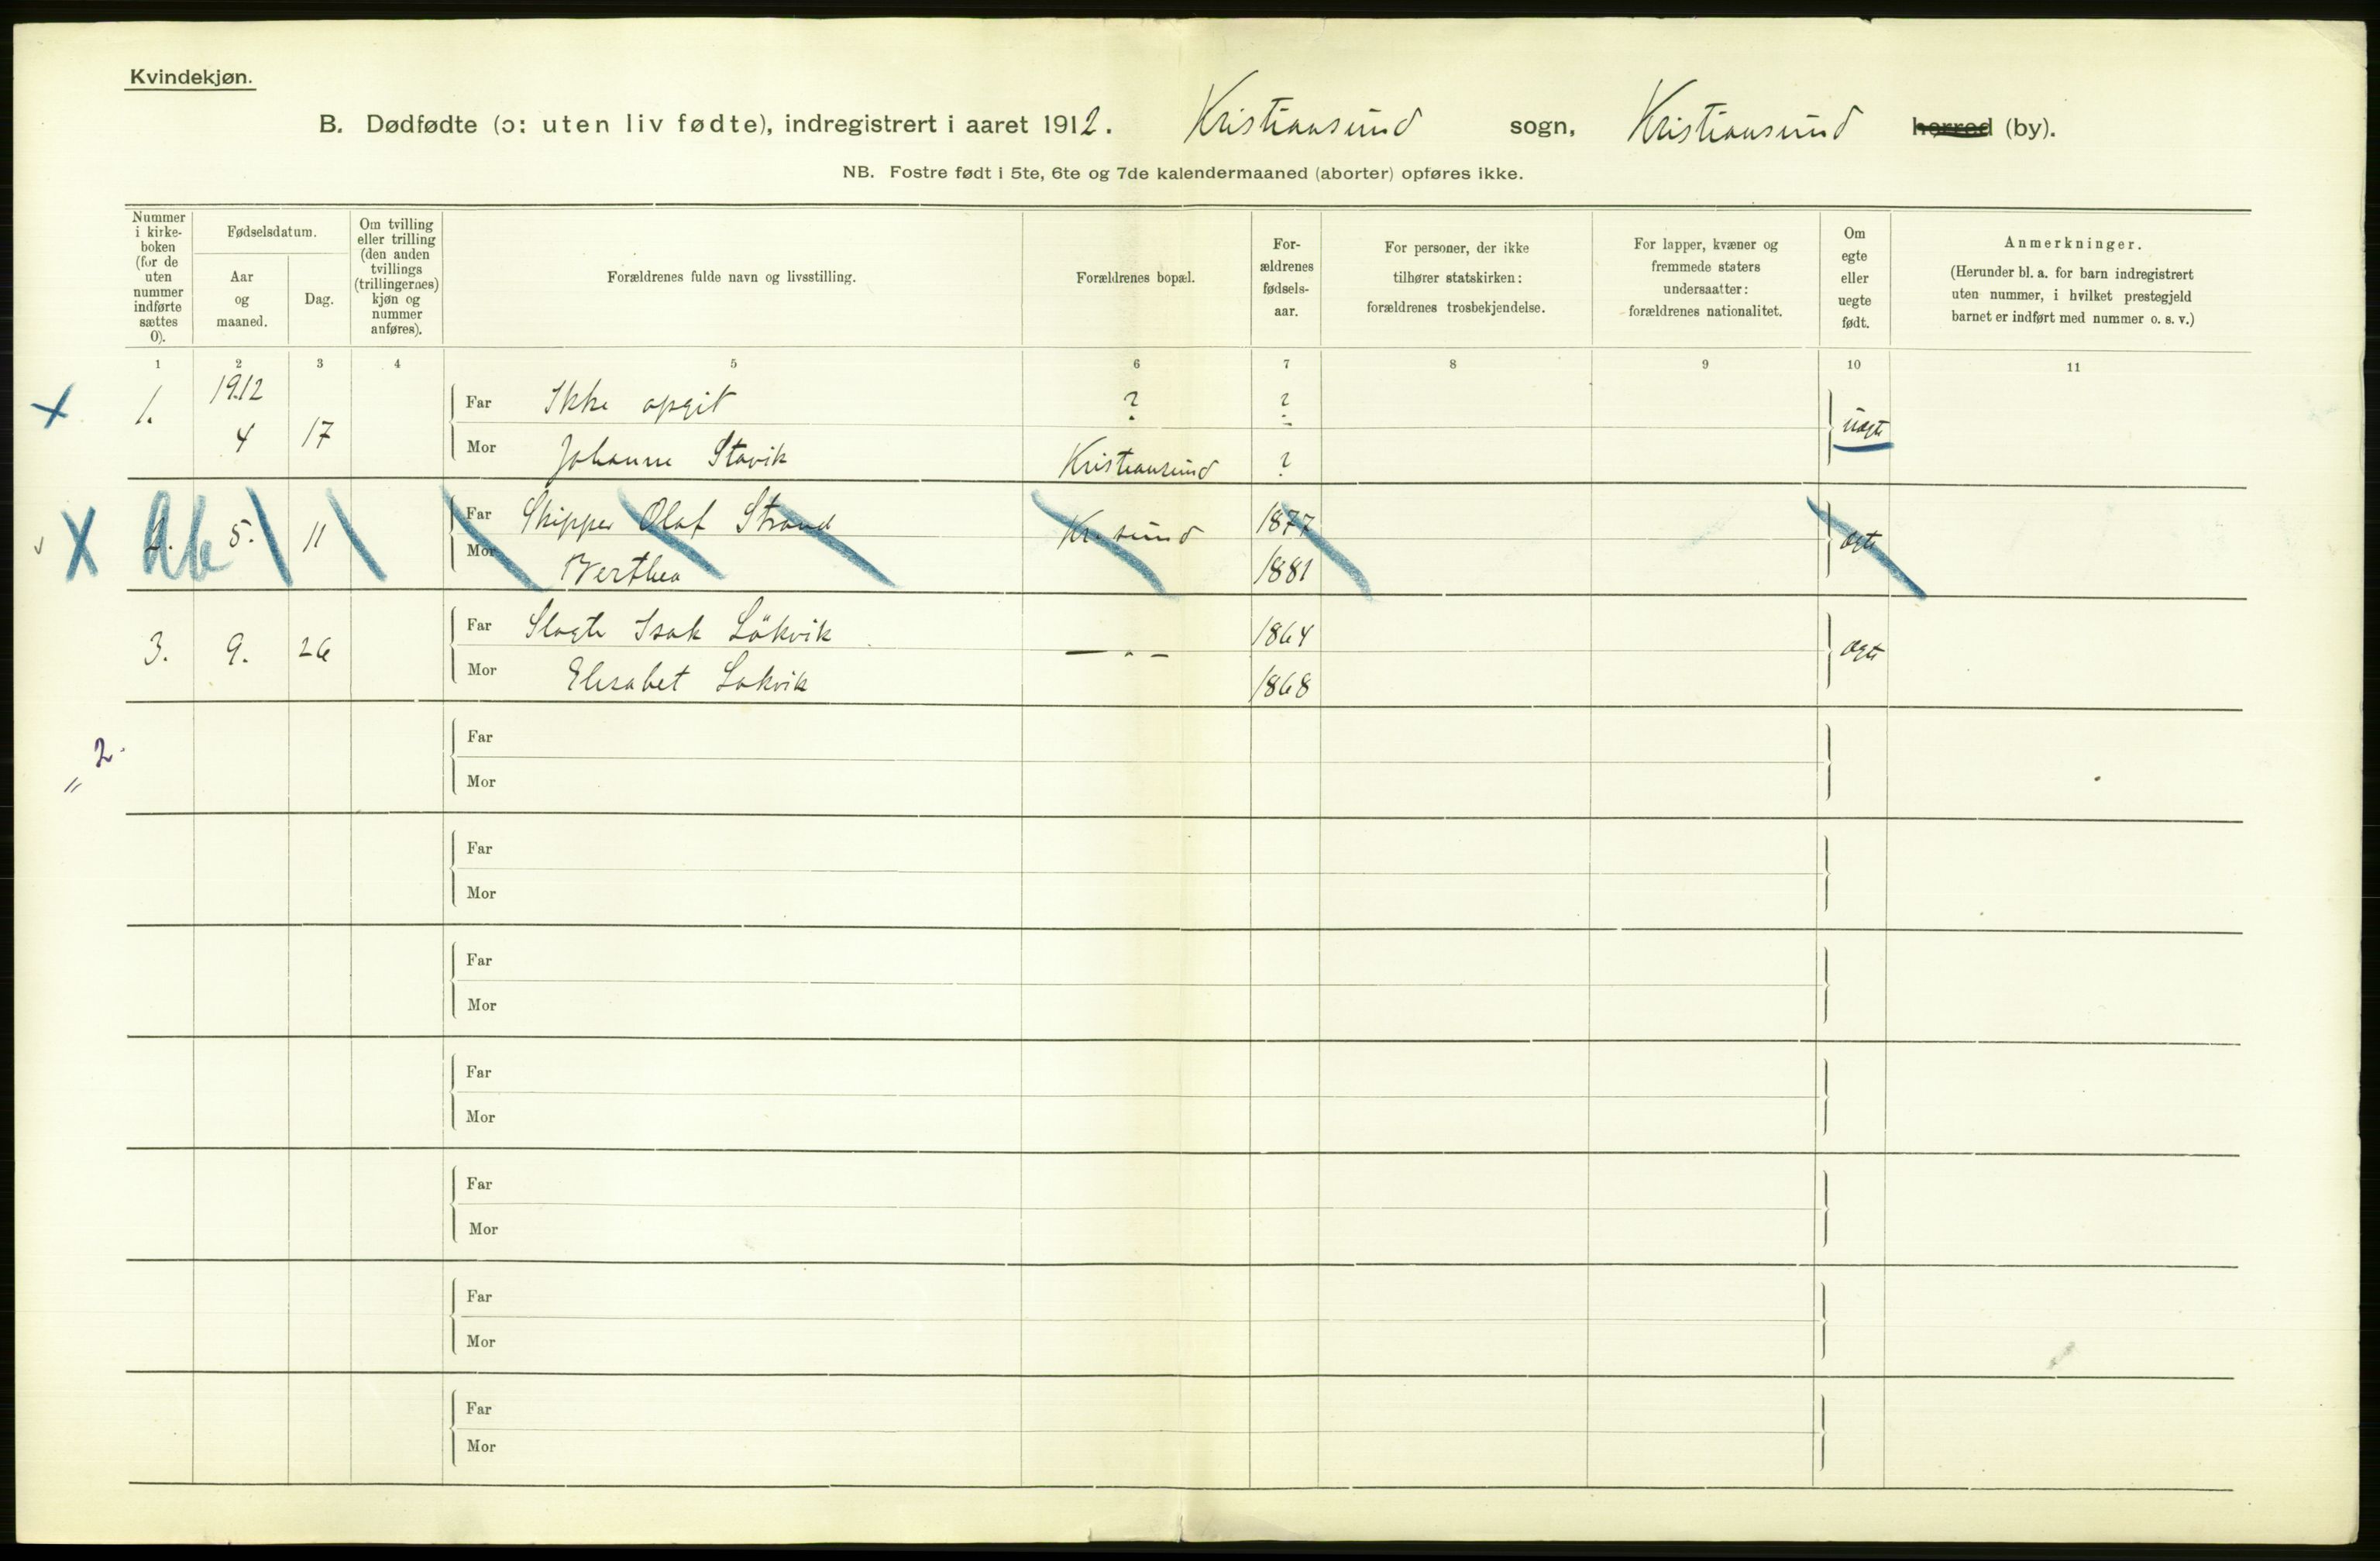 Kvindekjøn.
B. Dødfødte (ɔ: uten liv fødte), indregistrert i aaret 1912. Kristiansund sogn, Kristiansund herred (by).
NB. Fostre født i 5te, 6te og 7de kalendermaaned (aborter) opføres ikke.
Nummer i kirke-boken (for de uten nummer indførte sættes 0).
Fødselsdatum.
Aar og maaned.
Dag.
Om tvilling eller trilling (den anden tvillings (trillingernes) kjøn og nummer anføres).
Forældrenes fulde navn og livsstilling.
Forældrenes bopæl.
For-ældrenes fødsels-aar.
For personer, der ikke tilhører statskirken: forældrenes trosbekjendelse.
For lapper, kvæner og fremmede staters undersaatter: forældrenes nationalitet.
Om egte eller uegte født.
Anmerkninger.
(Herunder bl. a. for barn indregistrert uten nummer, i hvilket prestegjeld barnet er indført med nummer o. s. v.)
1 2 3 4 5 6 7 8 9 10 11
1. 1912 4 17 Far Ikke opgit ? ? uægte
Mor Johanne Stavik Kristiansund ?
2. 5. 11 Far Skipper Olaf Strand Kr.sund 1877 ægte
Mor Berthea 1881
3. 9. 26 Far Isak Lökvik — " — 1864 ægte
Mor Elisabet Lökvik 1868
Far
" 2
Mor
Far
Mor
Far
Mor
Far
Mor
Far
Mor
Far
Mor
Far
Mor